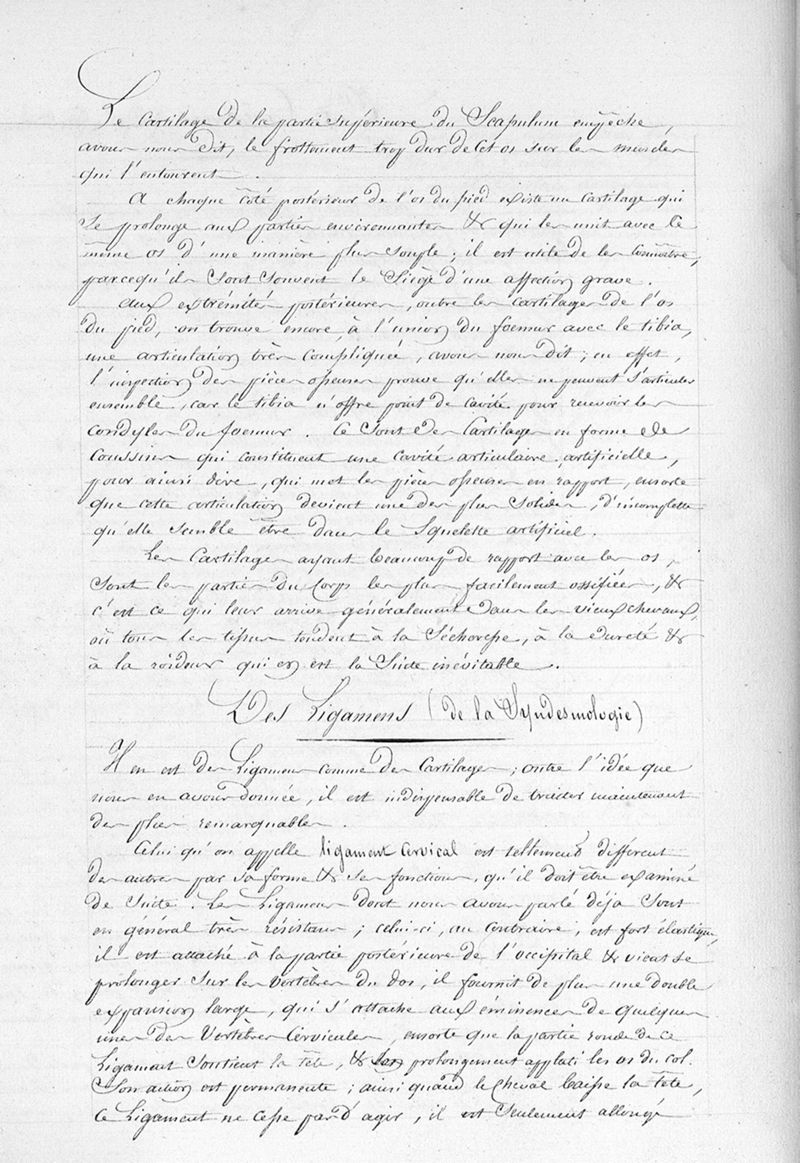 Le Cartilage de la partie supérieure du Scapulum empêche,
avons nous dit, le frottement trop dur de cet os sur les muscles
qui l'entourent.
A chaque côté postérieur de l'os du pied existe un Cartilage qui
se prolonge aux parties environnantes & qui les unit avec le
même os d'une manière plus souple; il est utile de les connaître,
parcequ'ils sont souvent le Siège d'une affection grave.
Aux extrémités postérieures, outre les cartilages de l'os
du pied, on trouve encore, à l'union du foemur avec le tibia,
une articulation très compliquée, avons nous dit; en effet,
l'inspection des pièces osseuses prouve qu'elles ne peuvent s'articuler
ensemble, car le tibia n'offre point de cavité pour recevoir les
condyles du foemur. Ce sont des Cartilages en forme de
Coussins qui constituent une cavité articulaire artificielle,
pour ainsi dire, qui met les pièces osseuses en rapport, ensorte
que cette articulation devient une des plus solides, d'incomplette
qu'elle semble être dans le squelette artificiel.
Les Cartilages ayant beaucoup de rapport avec les os,
sont les parties du Corps les plus facilement ossifiées, &
c'est ce qui leur arrive généralement dans les vieux chevaux,
où tous les tissus tendent à la Sécheresse, à la dureté &
à la roideur qui en est la Suite inévitable.
Des Ligamens (de la Syndesmologie)
Il en est des Ligamens comme des Cartilages; outre l'idée que
nous en avons donnée, il est indispensable de traiter maintenant
des plus remarquables.
Celui qu'on appelle ligament Cervical est tellement différent
des autres par sa forme & ses fonctions, qu'il doit être examiné
de Suite. Les Ligamens dont nous avons parlé déja sont
en général très résistans; celui-ci, au contraire, est fort élastique,
il est attaché à la partie postérieure de l'occipital & vient se
prolonger sur les vertèbres du dos, il fournit de plus une double
expansion large, qui s'attache aux éminences de quelques
unes des Vertèbres Cervicales, ensorte que la partie ronde de ce
Ligament soutient la tête, & prolongement applati les os du col.
Son action est permanente; ainsi quand le Cheval baisse la tête,
ce Ligament ne cesse pas d'agir, il est seulement allongé